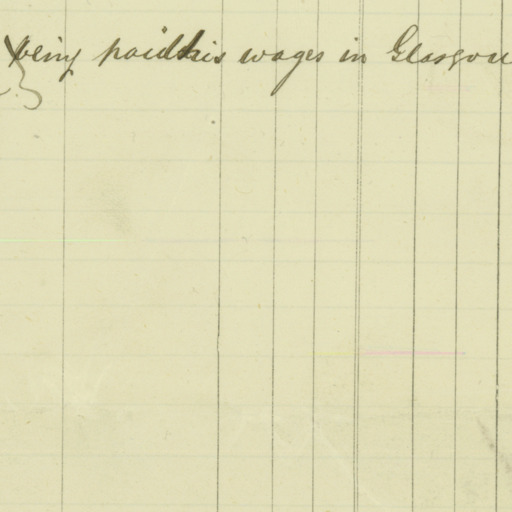 being paid his wages in Glasgow